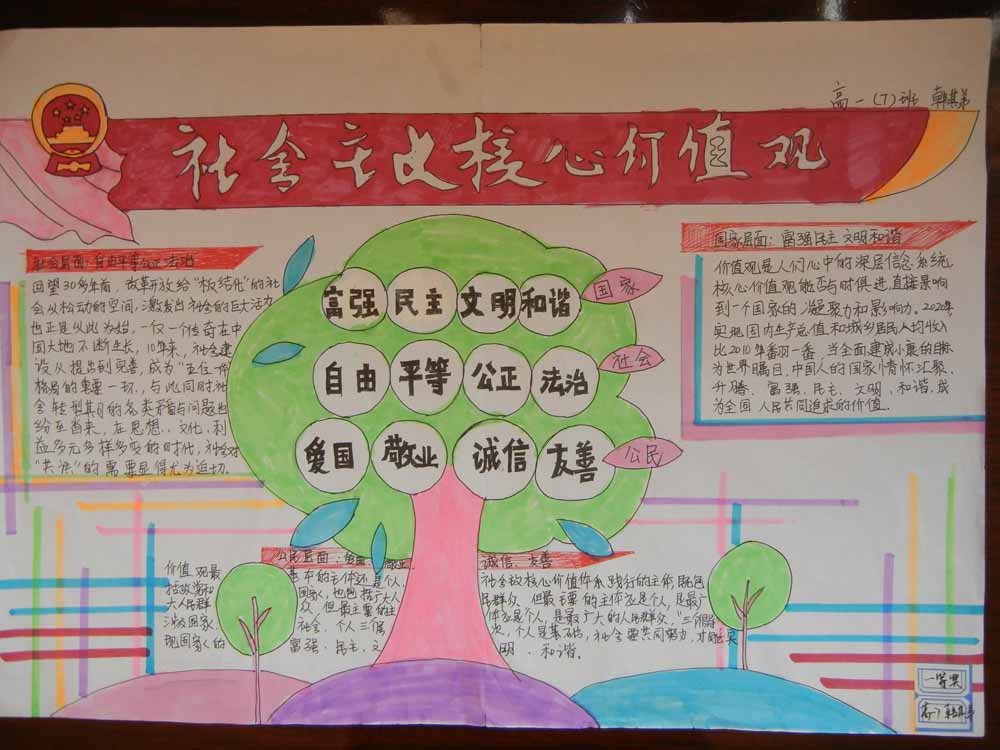 高一(7)班
社会主义核心价值观
社会层面:自由平等公正法治
回望30多年前,改革开放给“板结化”的社
会从松动的空间,激发出社会的巨大活力
也正是从此为始,一仅一个传奇在中
国大地不断生长,10年来,社会建
设从提出到完善,成为“五位一体
格局的重要一环,与此同时社
会转型其月的各类矛盾与问题也
纷至沓来,在思想、文化、利
益多元多样多变的时代,社会对
“共识”的需要显得尤为迫切.
富强 民主 文明 和谐
国家
自由 平等 公正 法治
社会
爱国 敬业 诚信 友善
公民
国家层面:富强民主文明和谐
价值观是人们心中的深层信念系统
核心价值观能否与时俱进,直接影响
到一个国家的凝聚力和影响力。2020年
实现国内生产总值和城乡居民人均收入
比2010年番羽一番,当全面建成小康的目标
为世界瞩目,中国人的国家情怀汇聚、
升腾、富强、民主、文明、和谐、成
为全国人民共同追求的价值.
公民层面: 敬业 诚信、友善
价值观最 基本的主体还是个人. 社会放核心价值体系践行的主体,既包
括政党和 国家,也包括广大人 民群众,但最主要的主体应是个人,是最广
大人民群 众,但最主要的主 体应是个人,是最广大的人民群众,“三个倡
涉及国家、社会、个人三個 次,个人是基础,社会要共同努力,才能
现国家的 富强、民主、文 明、和谐.
一等奖
高一7